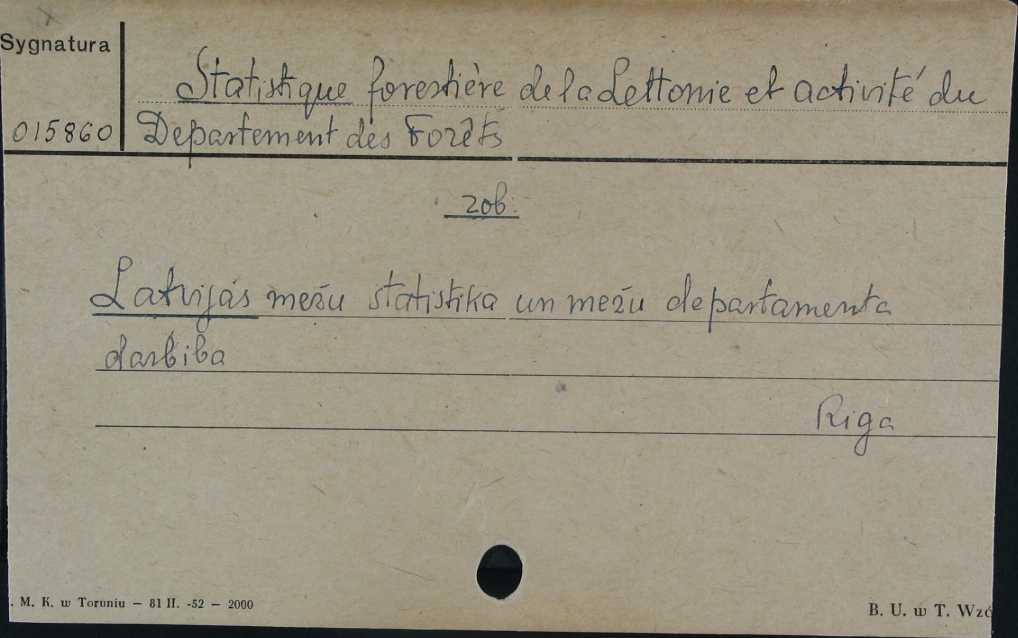 Sygnatura
Statistique forestière de la Lettonie et activité du
015860 Departement des Forêts
zob.
Latvijás mežu statistika un mežu departamenta
darbiba
Riga
. M. K. w Toruniu — 81 II. -52 — 2000
B. U. w T. Wzó